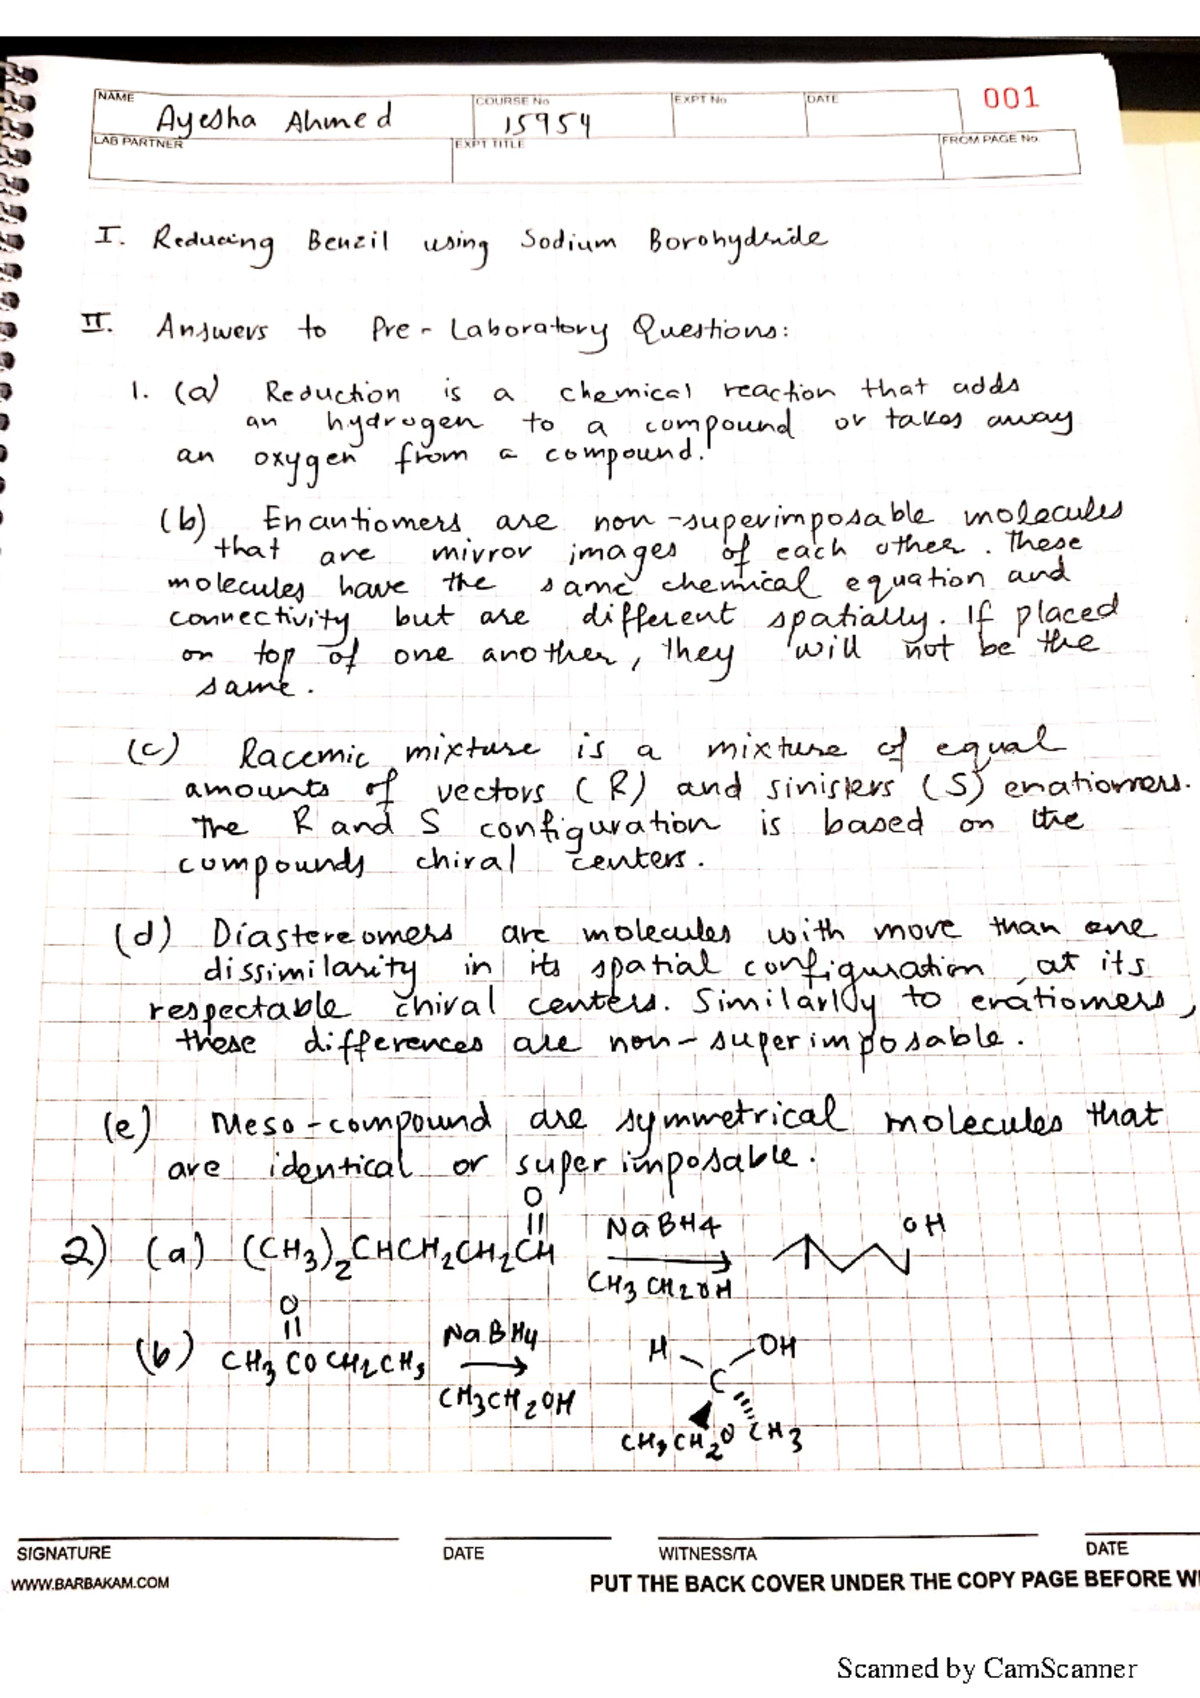 NAME
Ayesha Ahmed
COURSE No
15954
EXPT No
DATE
001
LAB PARTNER
EXPT TITLE
FROM PAGE No.
I. Reducing Benzil using Sodium Borohydride
II. Answers to Pre-Laboratory Questions:
1. (a) Reduction is a chemical reaction that adds
an hydrogen to a compound or takes away
an oxygen from a compound.
(b) Enantiomers are non-superimposable molecules
that are mirror images of each other. These
molecules have the same chemical equation and
connectivity but are different spatially. If placed
on top of one another, they will not be the
same.
(c) Racemic mixture is a mixture of equal
amounts of vectors (R) and sinisters (S) enatiomers.
The R and S configuration is based on the
compounds chiral centers.
(d) Diastereomers are molecules with more than one
dissimilarity in its spatial configuration at its
respectable chiral centers. Similarly to enatiomers,
these differences are non-superimposable.
(e) Meso-compound are symmetrical molecules that
are identical or superimposable.
O
||
2) (a) (CH3)2CHCH2CH2CH
NaBH4
CH3CH2OH
OH
O
||
(b) CH3COCH2CH3
NaBH4
CH3CH2OH
H
OH
C
CH3CH2O
CH3
SIGNATURE
DATE
WITNESS/TA
DATE
WWW.BARBAKAM.COM
PUT THE BACK COVER UNDER THE COPY PAGE BEFORE W
Scanned by CamScanner